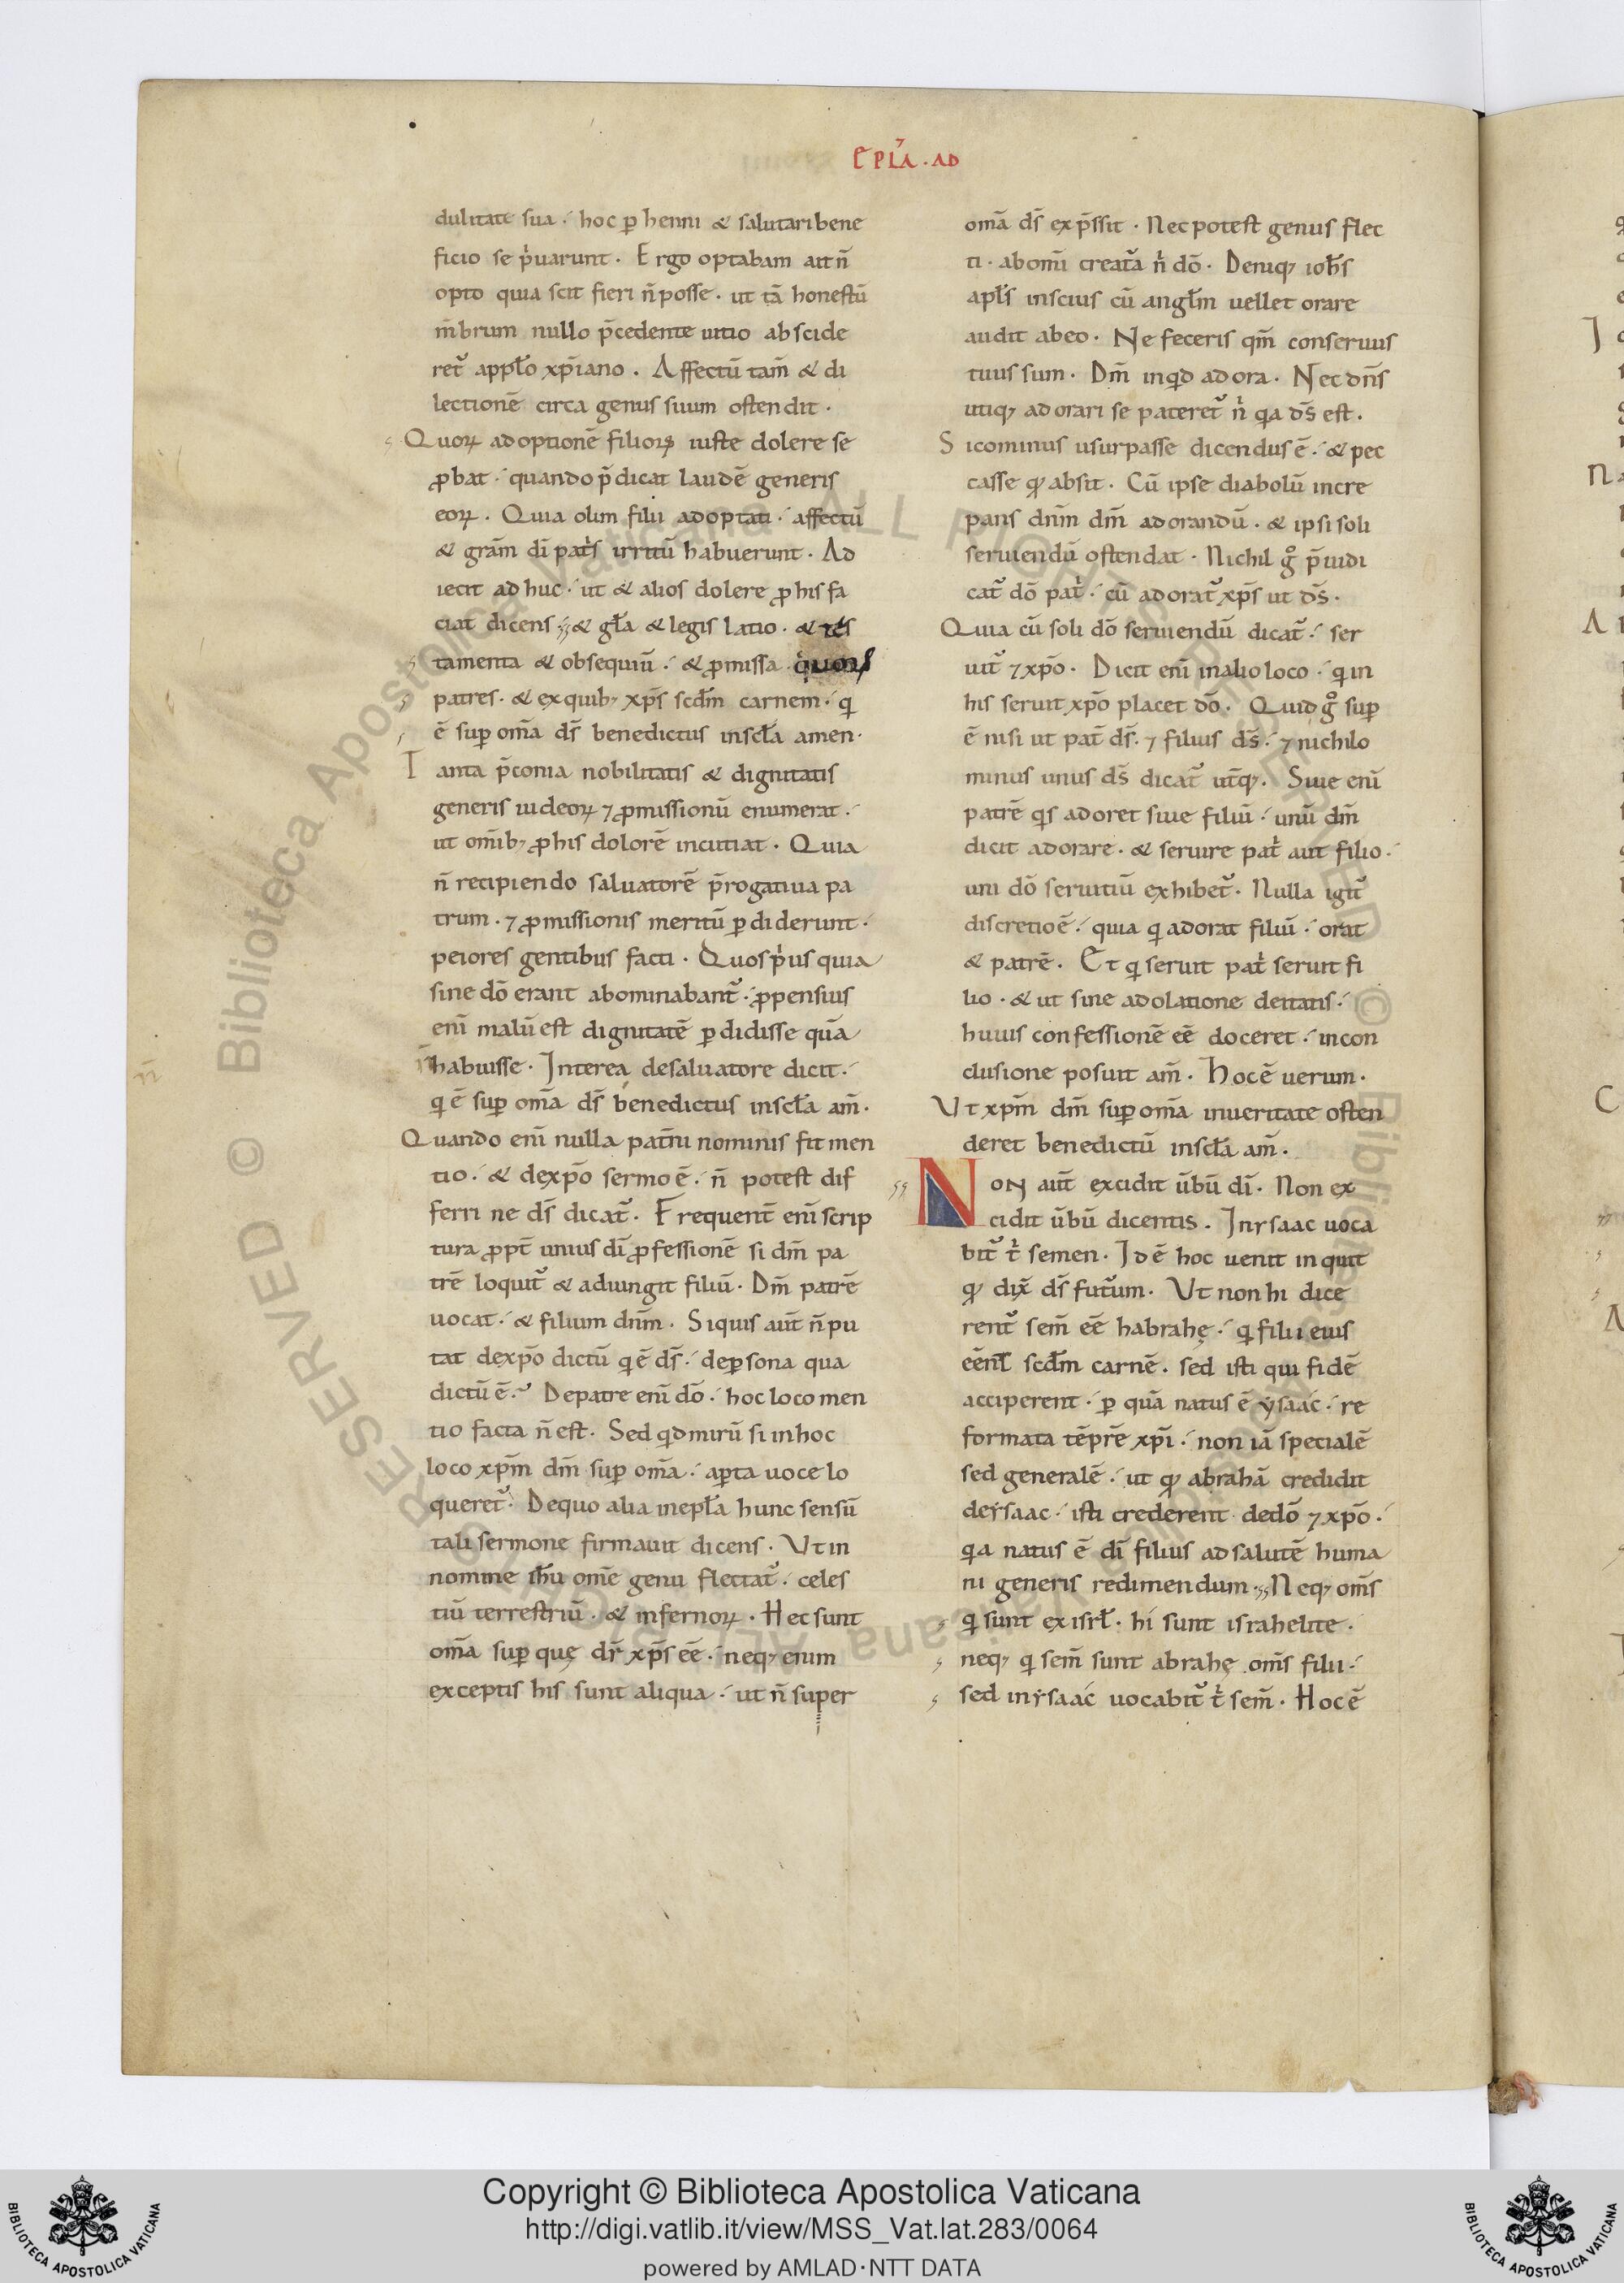 EPL̄A · AD
dulitate sua ·́ hoc ꝑhenni & salutaribene
ficio se pⁱuarunt · Ergo optabam ait n̄
opto quia scit fieri n̄ posse · ut tā honestū
m̄brum nullo p̄cedente uitio abscide
ret᷒ appl̄o xp̄iano . Affectū tam̄ & di
lectionē circa genus suum ostendit ·
Quoꝝ adoptionē filioꝝ iuste dolere se
ꝓbat ·́ quando p̄dicat laudē generis
eoꝝ . Quia olim filii adoptati ·́ affectū
& grām dī patⁱs irritū habuerunt · Ad
iecit adhuc ·́ ut & alios dolere ꝓ his fa
ciat dicens & gl̄a & legis latio · & tes
tamenta & obsequiū ·́ & ꝓmissa quoꝝ
patres · & ex quib; xp̄s scd̄m carnem ·́ q
ē suꝑ om̄a ds̄ benedictus inscl̄a amen ·
Tanta p̄conia nobilitatis & dignitatis
generis iudeoꝝ ⁊ ꝓmissionū enumerat ·́
ut om̄ib; ꝓ his dolorē incutiat · Quia
n̄ recipiendo saluatorē p̄rogatiua pa
trum · ⁊ ꝓmissionis meritū ꝑdiderunt ·́
peiores gentibus facti · Quos pⁱus quia
sine dō erant abominabant᷒ ·́ ꝓpensius
enī malū est dignitatē ꝑdidisse quā
n̄ habuisse · Interea desaluatore dicit ·́
q ē suꝑ om̄a ds̄ benedictus inscl̄a am̄ ·
Quando enī nulla pat̄ni nominis fit men
tio ·́ & dexp̄o sermo ē ·́ n̄ potest dif
ferri ne ds̄ dicat᷒ · Frequent̄ enī scrip
tura ꝓpt̄ unius dī ꝓfessionē si dm̄ pa
trē loquit᷒ & adiungit filiū · Dm̄ patrē
uocat ·́ & filium dnm̄ · Siquis aut̄ n̄ pu
tat dexp̄o dictū q ē ds̄ ·́ deꝑsona qua
dictū ē · Depatre enī dō ·́ hoc loco men
tio facta n̄ est · Sed qd mirū si inhoc
loco xp̄m dm̄ suꝑ om̄a ·́ aꝑta uoce lo
queret᷒ · Dequo alia inepl̄a hunc sensū
tali sermone firmauit dicens · Ut in
nomine ihū om̄e genu flectat᷒ ·́ celes
tiū terrestriū · & infernoꝝ · Hec sunt
om̄a suꝑ quę dr̄ xp̄s eē ·́ neq; enim
exceptis his sunt aliqua ·́ ut n̄ super
om̄a ds̄ exp̄ssit · Nec potest genus flec
ti · ab omī creat᷒a nⁱ dō · Deniq; ioh̄s
apl̄s inscius cū angl̄m uellet orare
audit abeo · Ne feceris qm̄ conseruus
tuus sum · Dm̄ inqd adora · Nec dn̄s
utiq; adorari se pateret᷒ nⁱ qa ds̄ est .
Sicominus usurpasse dicendus ē ·́ & pec
casse qđ absit · Cū ipse diabolū incre
pans dnm̄ dm̄ adorandū · & ipsi soli
seruiendū ostendat · Nichil g° p̄iudi
cat᷒ dō patⁱ ·́ cū adorat᷒ xp̄s ut ds̄ ·
Quia cū soli dō seruiendū dicat᷒ ·́ ser
uit᷒ ⁊ xp̄o · Dicit enī inalio loco ·́ q in
his seruit xp̄o placet dō · Quid g° suꝑ
ē nisi ut pat̄ ds̄ · ⁊ filius ds̄ ·́ ⁊ nichilo
minus unus ds̄ dicat᷒ ut̄q; · Siue enī
patrē qs adoret siue filiū ·́ unū dm̄
dicit adorare · & seruire patⁱ aut filio ·́
uni dō seruitiū exhibet᷒ · Nulla igit᷒
discretio ē ·́ quia q adorat filiū ·́ orat
& patrē · Et q seruit patⁱ seruit fi
lio · & ut sine adolatione deitatis ·́
huuis confessionē eē doceret ·́ incon
clusione posuit am̄ · Hoc ē uerum ·
Ut xp̄m dm̄ suꝑ om̄a inueritate osten
deret benedictū inscl̄a am̄ ·
NON aut̄ excidit ūbū dī · Non ex
cidit ūbū dicentis . In ysaac uoca
bit᷒ tⁱ semen · Id ē hoc uenit inquit
qđ dix̄ ds̄ fut᷒um · Ut non hi dice
rent᷒ sem̄ eē habrahę ·́ q filii eius
eēnt scd̄m carnē . sed isti qui fidē
acciperent ·́ ꝑ quā natus ē ysaác ·́ re
formata tēp̄re xp̄i ·́ non iā specialē
sed generalē ·́ ut qđ abrahā credidit
de ysaac ·́ isti crederent dedō ⁊ xp̄o ·́
qa natus ē dī filius ad salutē huma
ni generis redimendum · Neq; om̄s
q sunt ex isrl̄ · hi sunt israhelite ·
neq; q sem̄ sunt abrahę om̄s filii ·́
sed in ysaác uocabit᷒ tⁱ sem̄ · Hoc ē
Copyright © Biblioteca Apostolica Vaticana
http://digi.vatlib.it/view/MSS_Vat.lat.283/0064
powered by AMLAD·NTT DATA
BIBLIOTECA APOSTOLICA VATICANA
BIBLIOTECA APOSTOLICA VATICANA